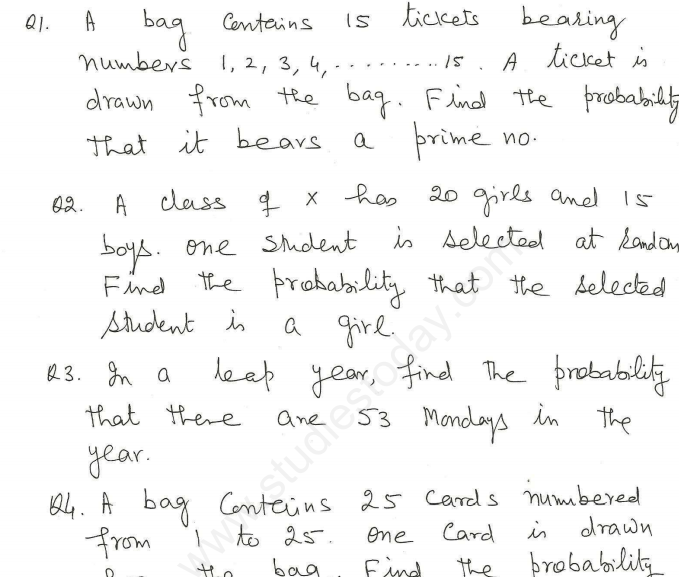 Q1. A bag Contains 15 tickets bearing
numbers 1, 2, 3, 4, .......... 15. A ticket is
drawn from the bag. Find the probability
that it bears a prime no.
Q2. A class of X has 20 girls and 15
boys. One student is selected at random
Find the probability that the selected
student is a girl.
Q3. In a leap year, find the probability
that there are 53 Mondays in the
year.
Q4. A bag Contains 25 Cards numbered
from 1 to 25. One Card is drawn
the bag. Find the probability
www.studiestoday.com